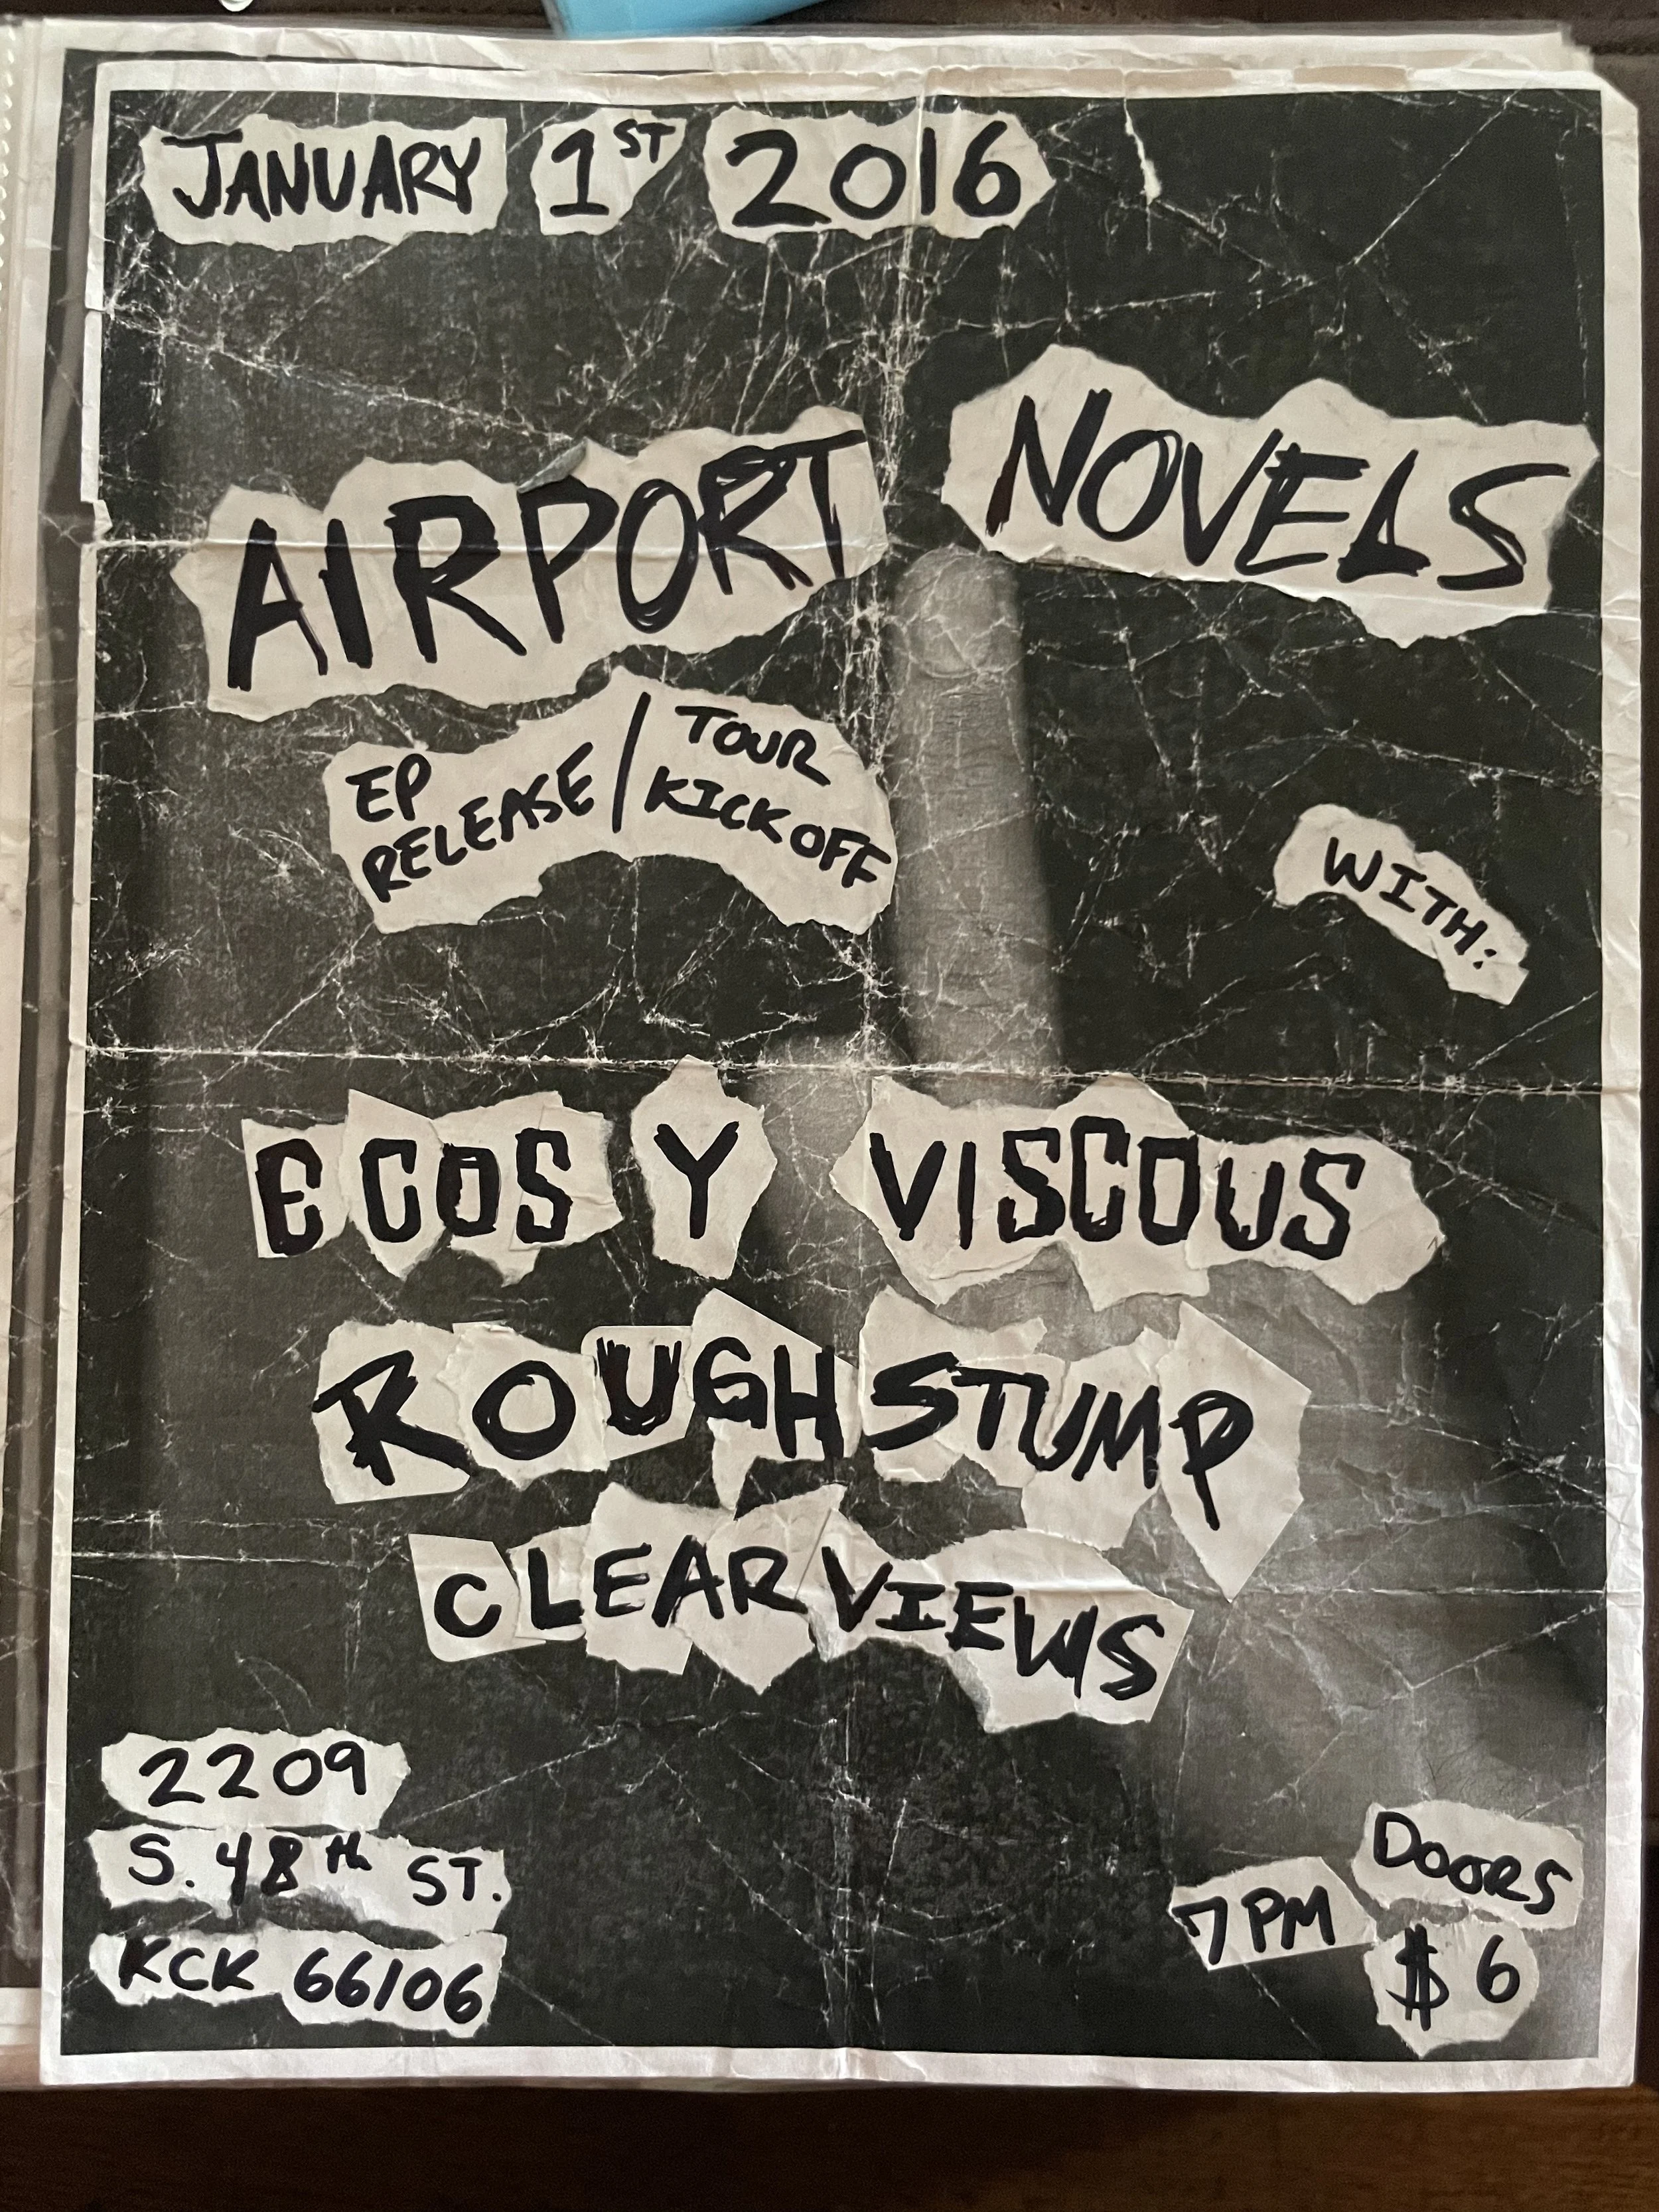 JANUARY 1ST 2016
AIRPORT NOVELS
EP RELEASE / TOUR KICK OFF
WITH:
ECOS Y VISCOUS
ROUGH STUMP
CLEAR VIEWS
2209
S. 48th ST.
KCK 66106
7PM DOORS
$6